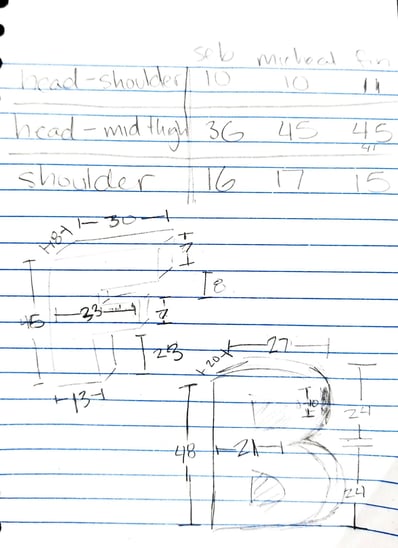 seb micheal fin
head-shoulder 10 10 11
head-midthigh 36 45 45
41
shoulder 16 17 15
30
8
45
33
23
13
27
20
48
21
24
24